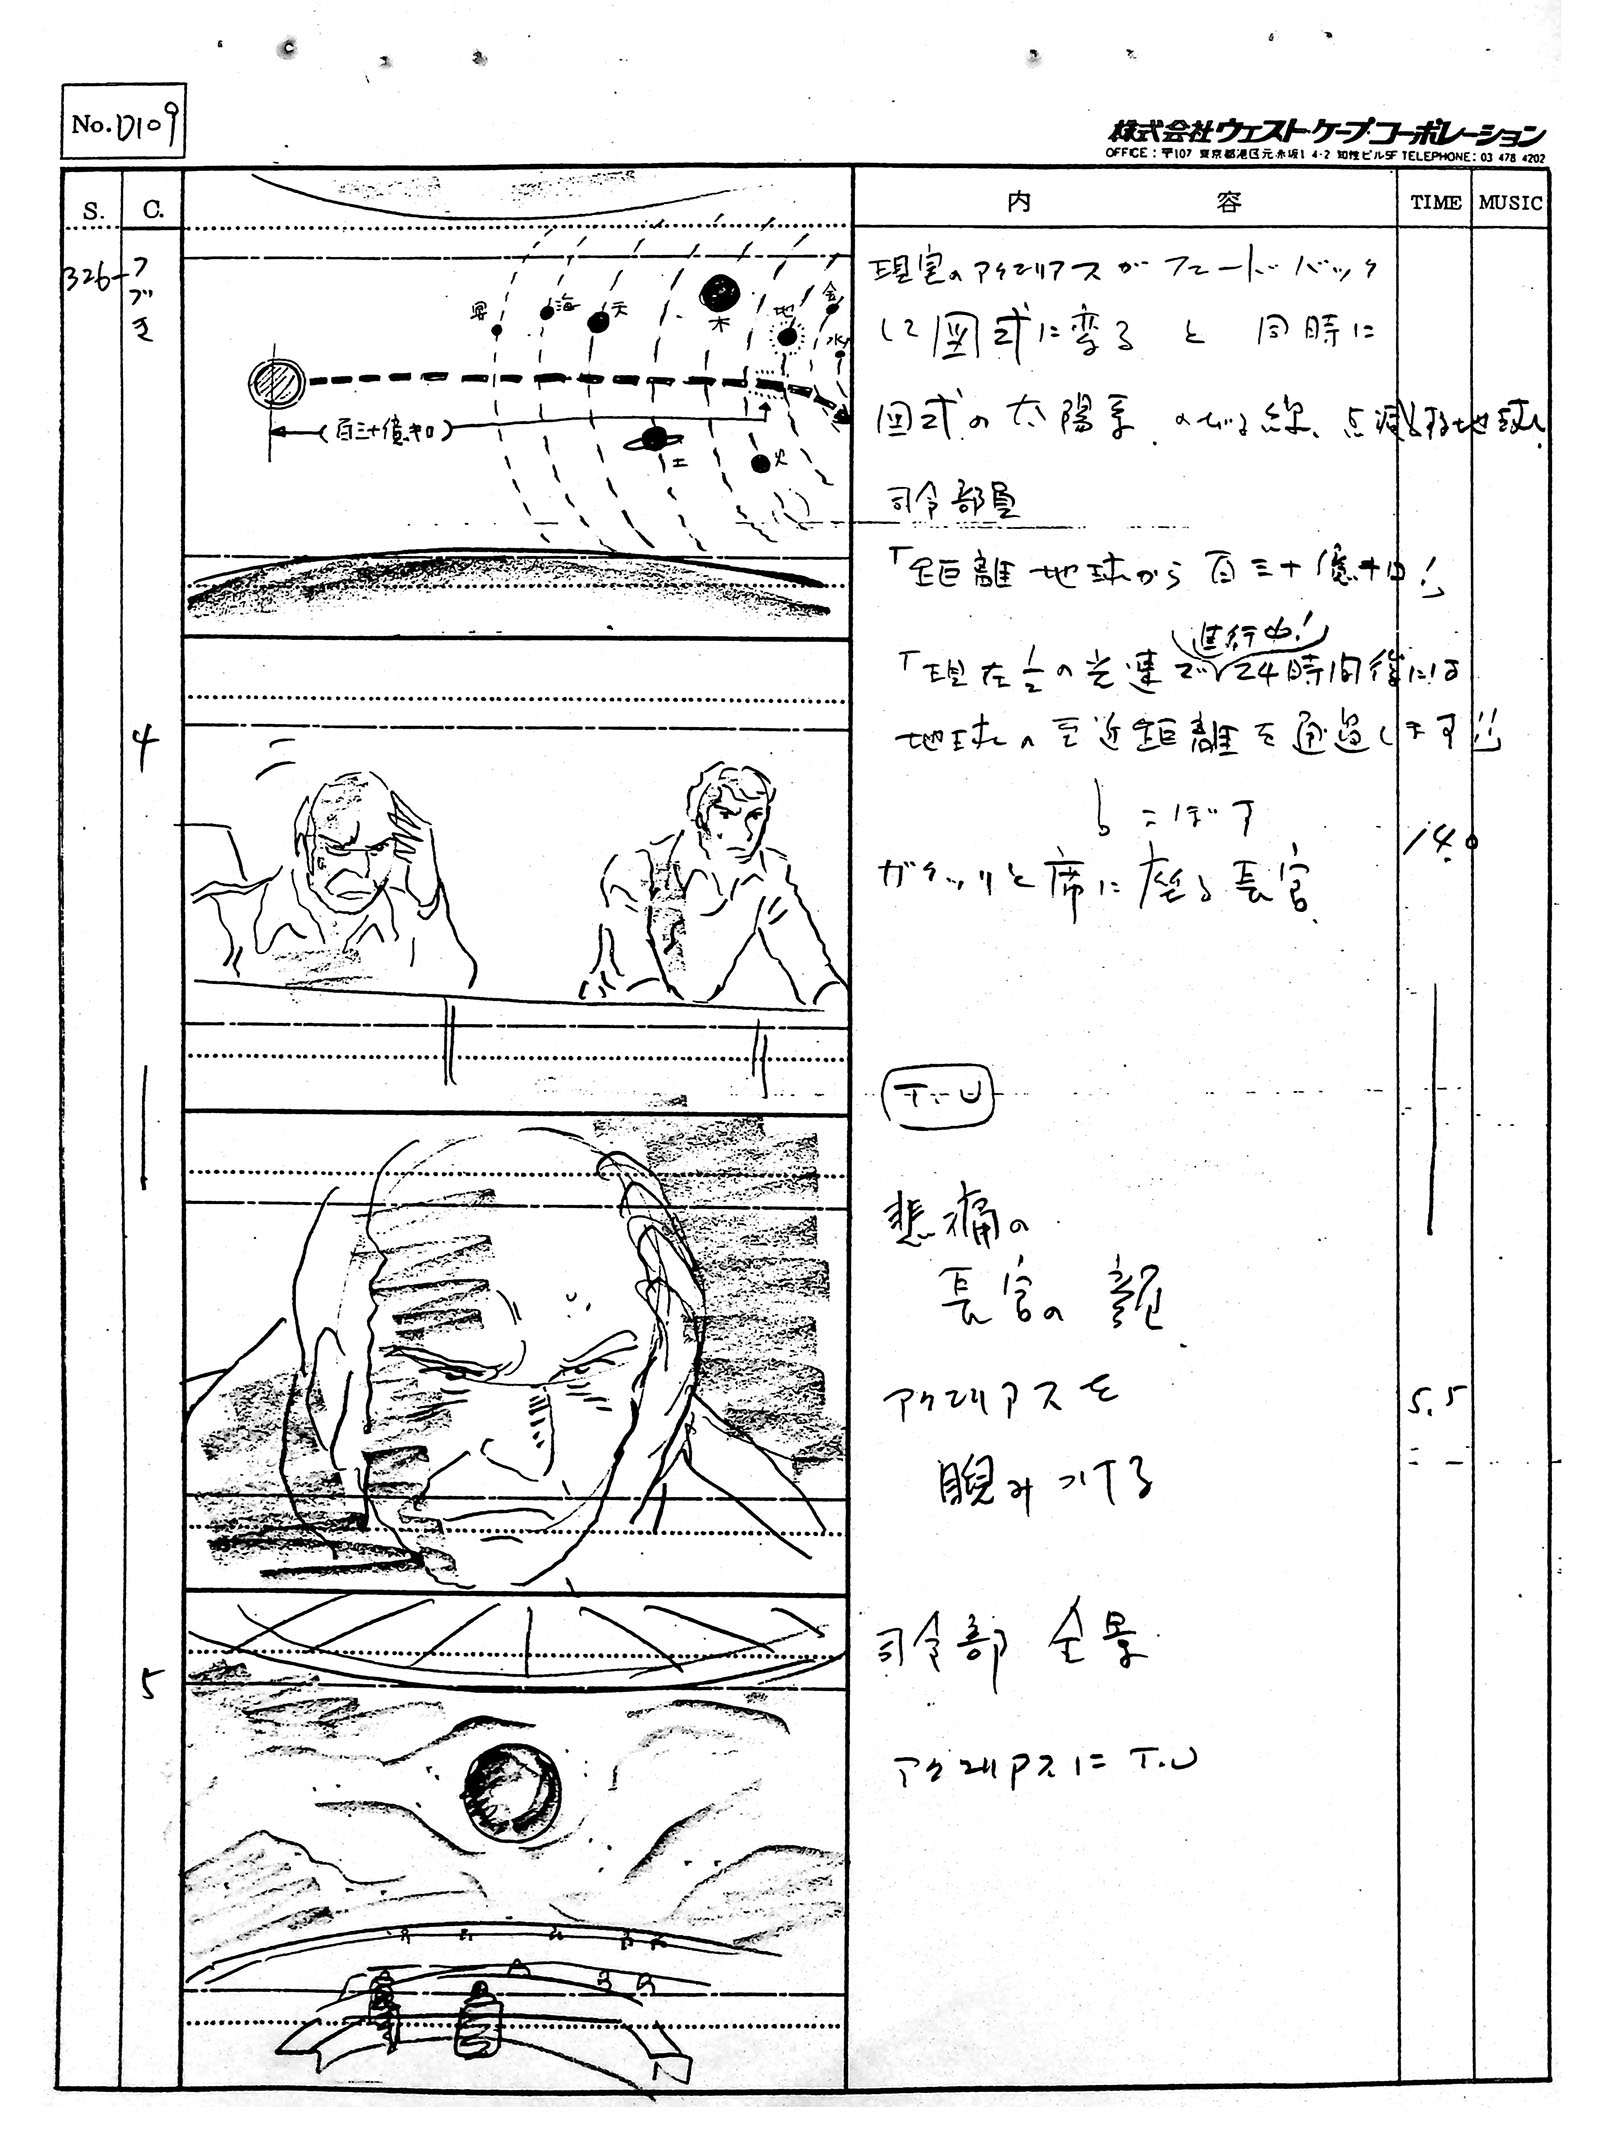 No. D109
株式会社ウェスト・ケープ・コーポレーション
OFFICE：〒107 東京都港区元赤坂1 4-2 知性ビル5F TELEPHONE：03 478 4202
S. C. 内 容 TIME MUSIC
326-
つづき
冥 海 天 木 地 金 水
(百三十億キロ)
土 火
現実のアクエリアスがフェードバック
して図式に変ると同時に
図式の太陽系、のびる線、点滅する地球
司令部員
「距離 地球から百三十億キロ!」
進行中!
「現在1/2の光速で24時間後には
地球の至近距離を通過します!!」
4
こぼす
ガックリと席に座る長官
14.0
T.U
悲痛の
長官の顔
アクエリアスを
睨みつける
5.5
5
司令部 全景
アクエリアスにT.U